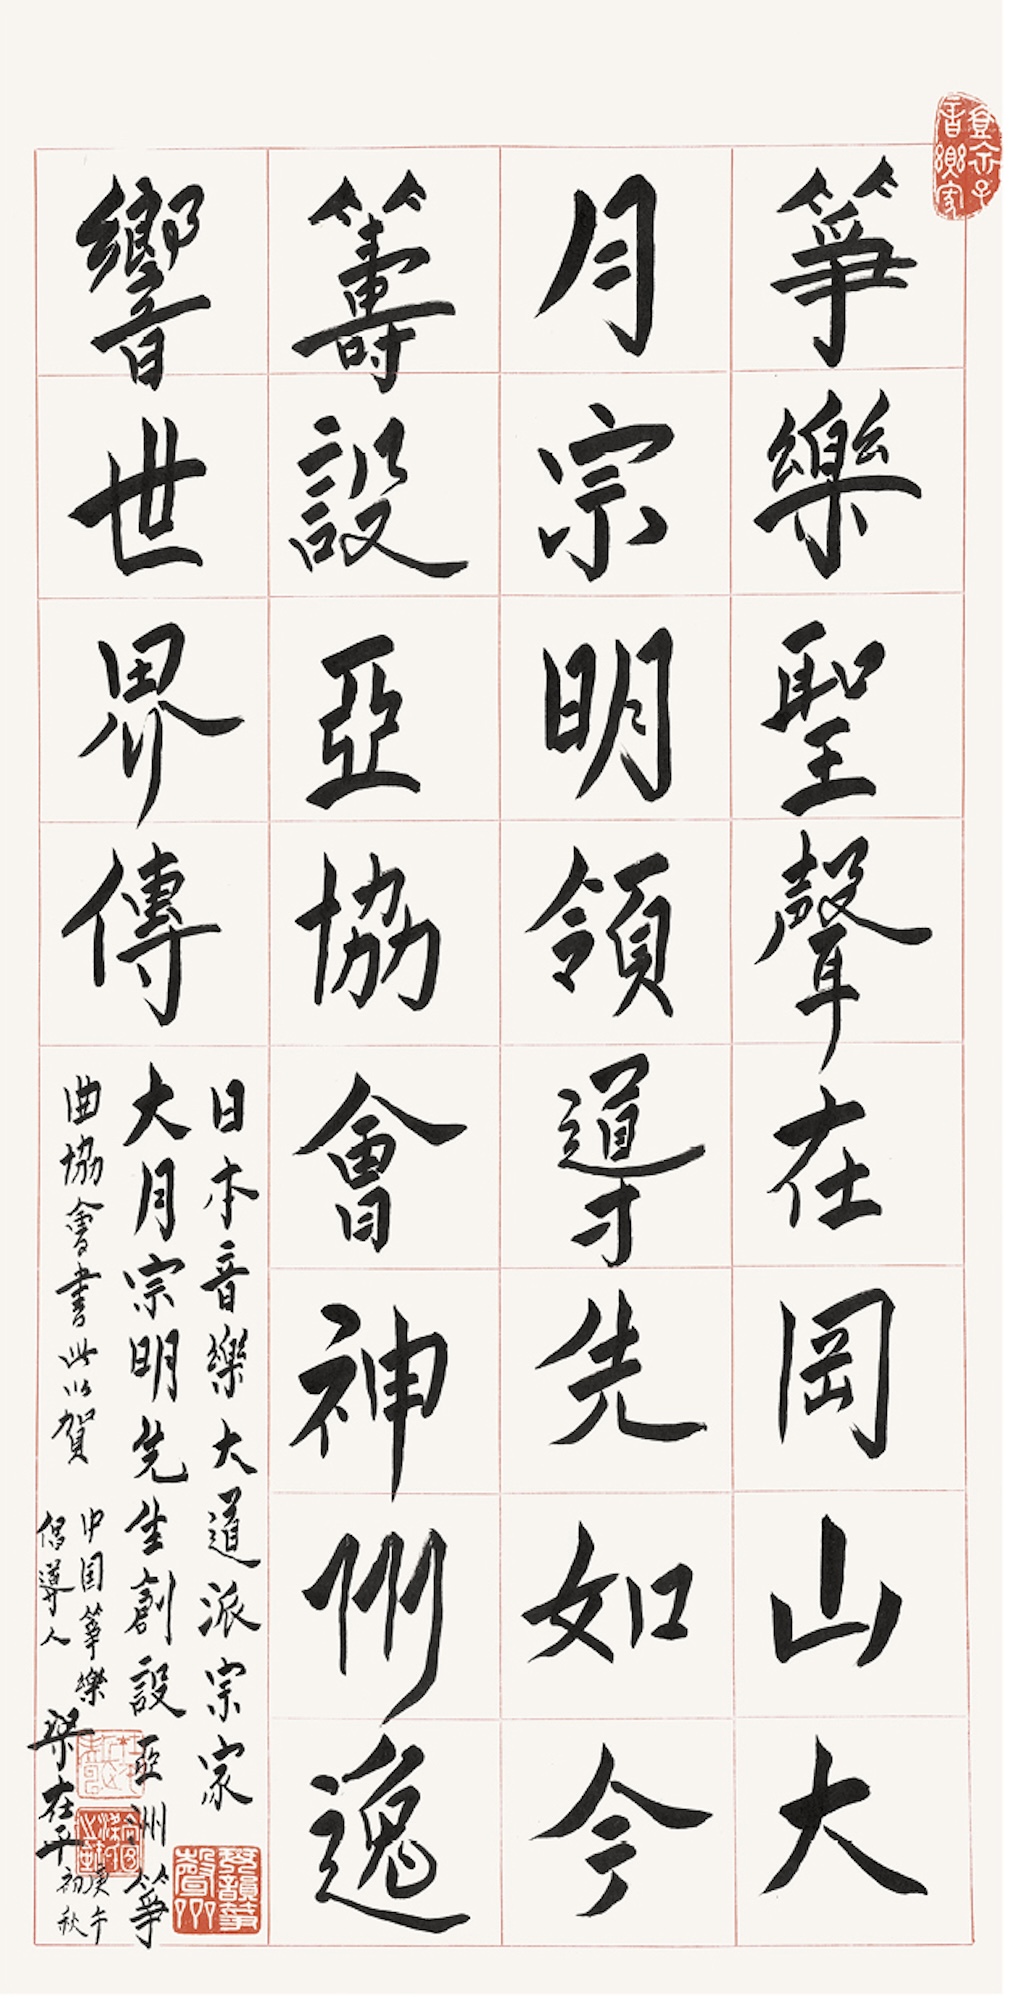 箏樂聖聲在岡山大
月宗明領導先如今
籌設亞協會神州逸
響世界傳
日本音樂大道派宗家
大月宗明先生創設亞洲箏
曲協會書此以賀
中国箏樂
倡導人
梁在平
庚午
初秋